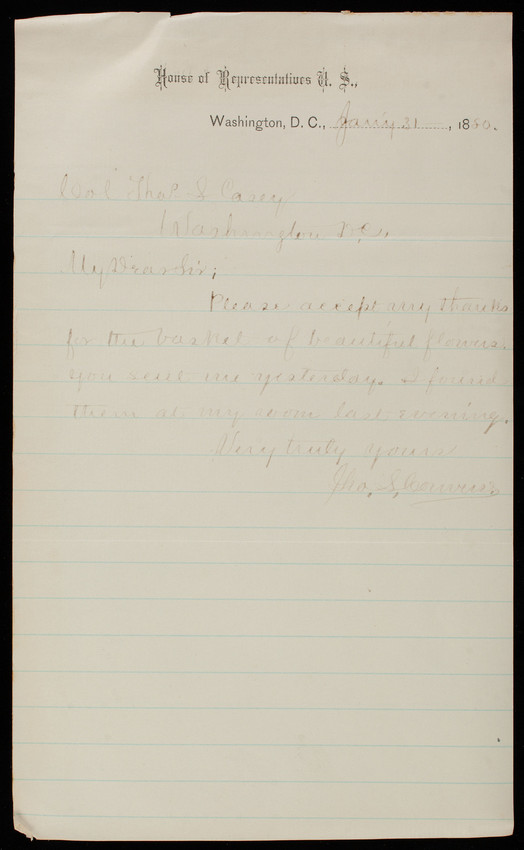 House of Representatives U. S.,
Washington, D. C., Jan'y 31, 1880.
Col Tho's L Casey
Washington D.C.,
My Dear Sir;
Please accept my thanks
for the basket of beautiful flowers
you sent me yesterday. I found
them at my room last evening.
Very truly yours